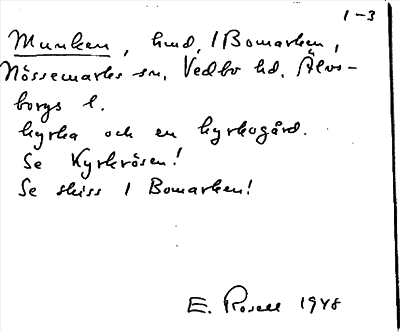 1-3
Munken, hmd, / Bomarken,
Nössemarks sn, Vedbo hd. Älvs-
borgs l.
kyrka och en kyrkogård.
Se Kyrkrösen!
Se skiss 1 Bomarken!
E. Rosell 1948